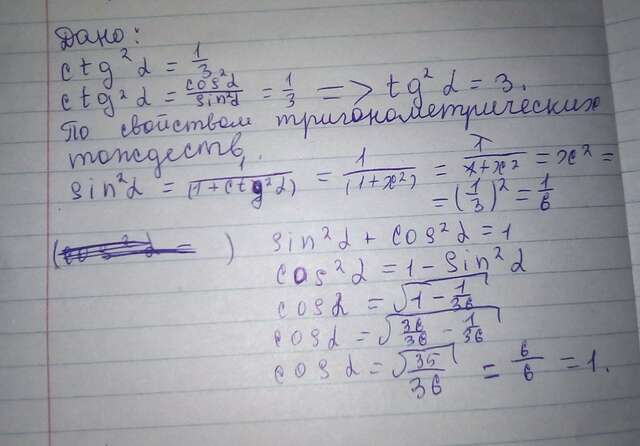 Дано:
ctg²α = 1/3
ctg²α = cos²α/sin²α = 1/3 => tg²α = 3.
По свойствам тригонометрических
тождеств,
sin²α = 1/(1+ctg²α) = 1/(1+x²) = 1/x+x² = x² =
= (1/3)² = 1/6
( ) sin²α + cos²α = 1
cos²α = 1 - sin²α
cosα = √1 - 1/36
cosα = √36/36 - 1/36
cosα = √35/36 = 6/6 = 1.